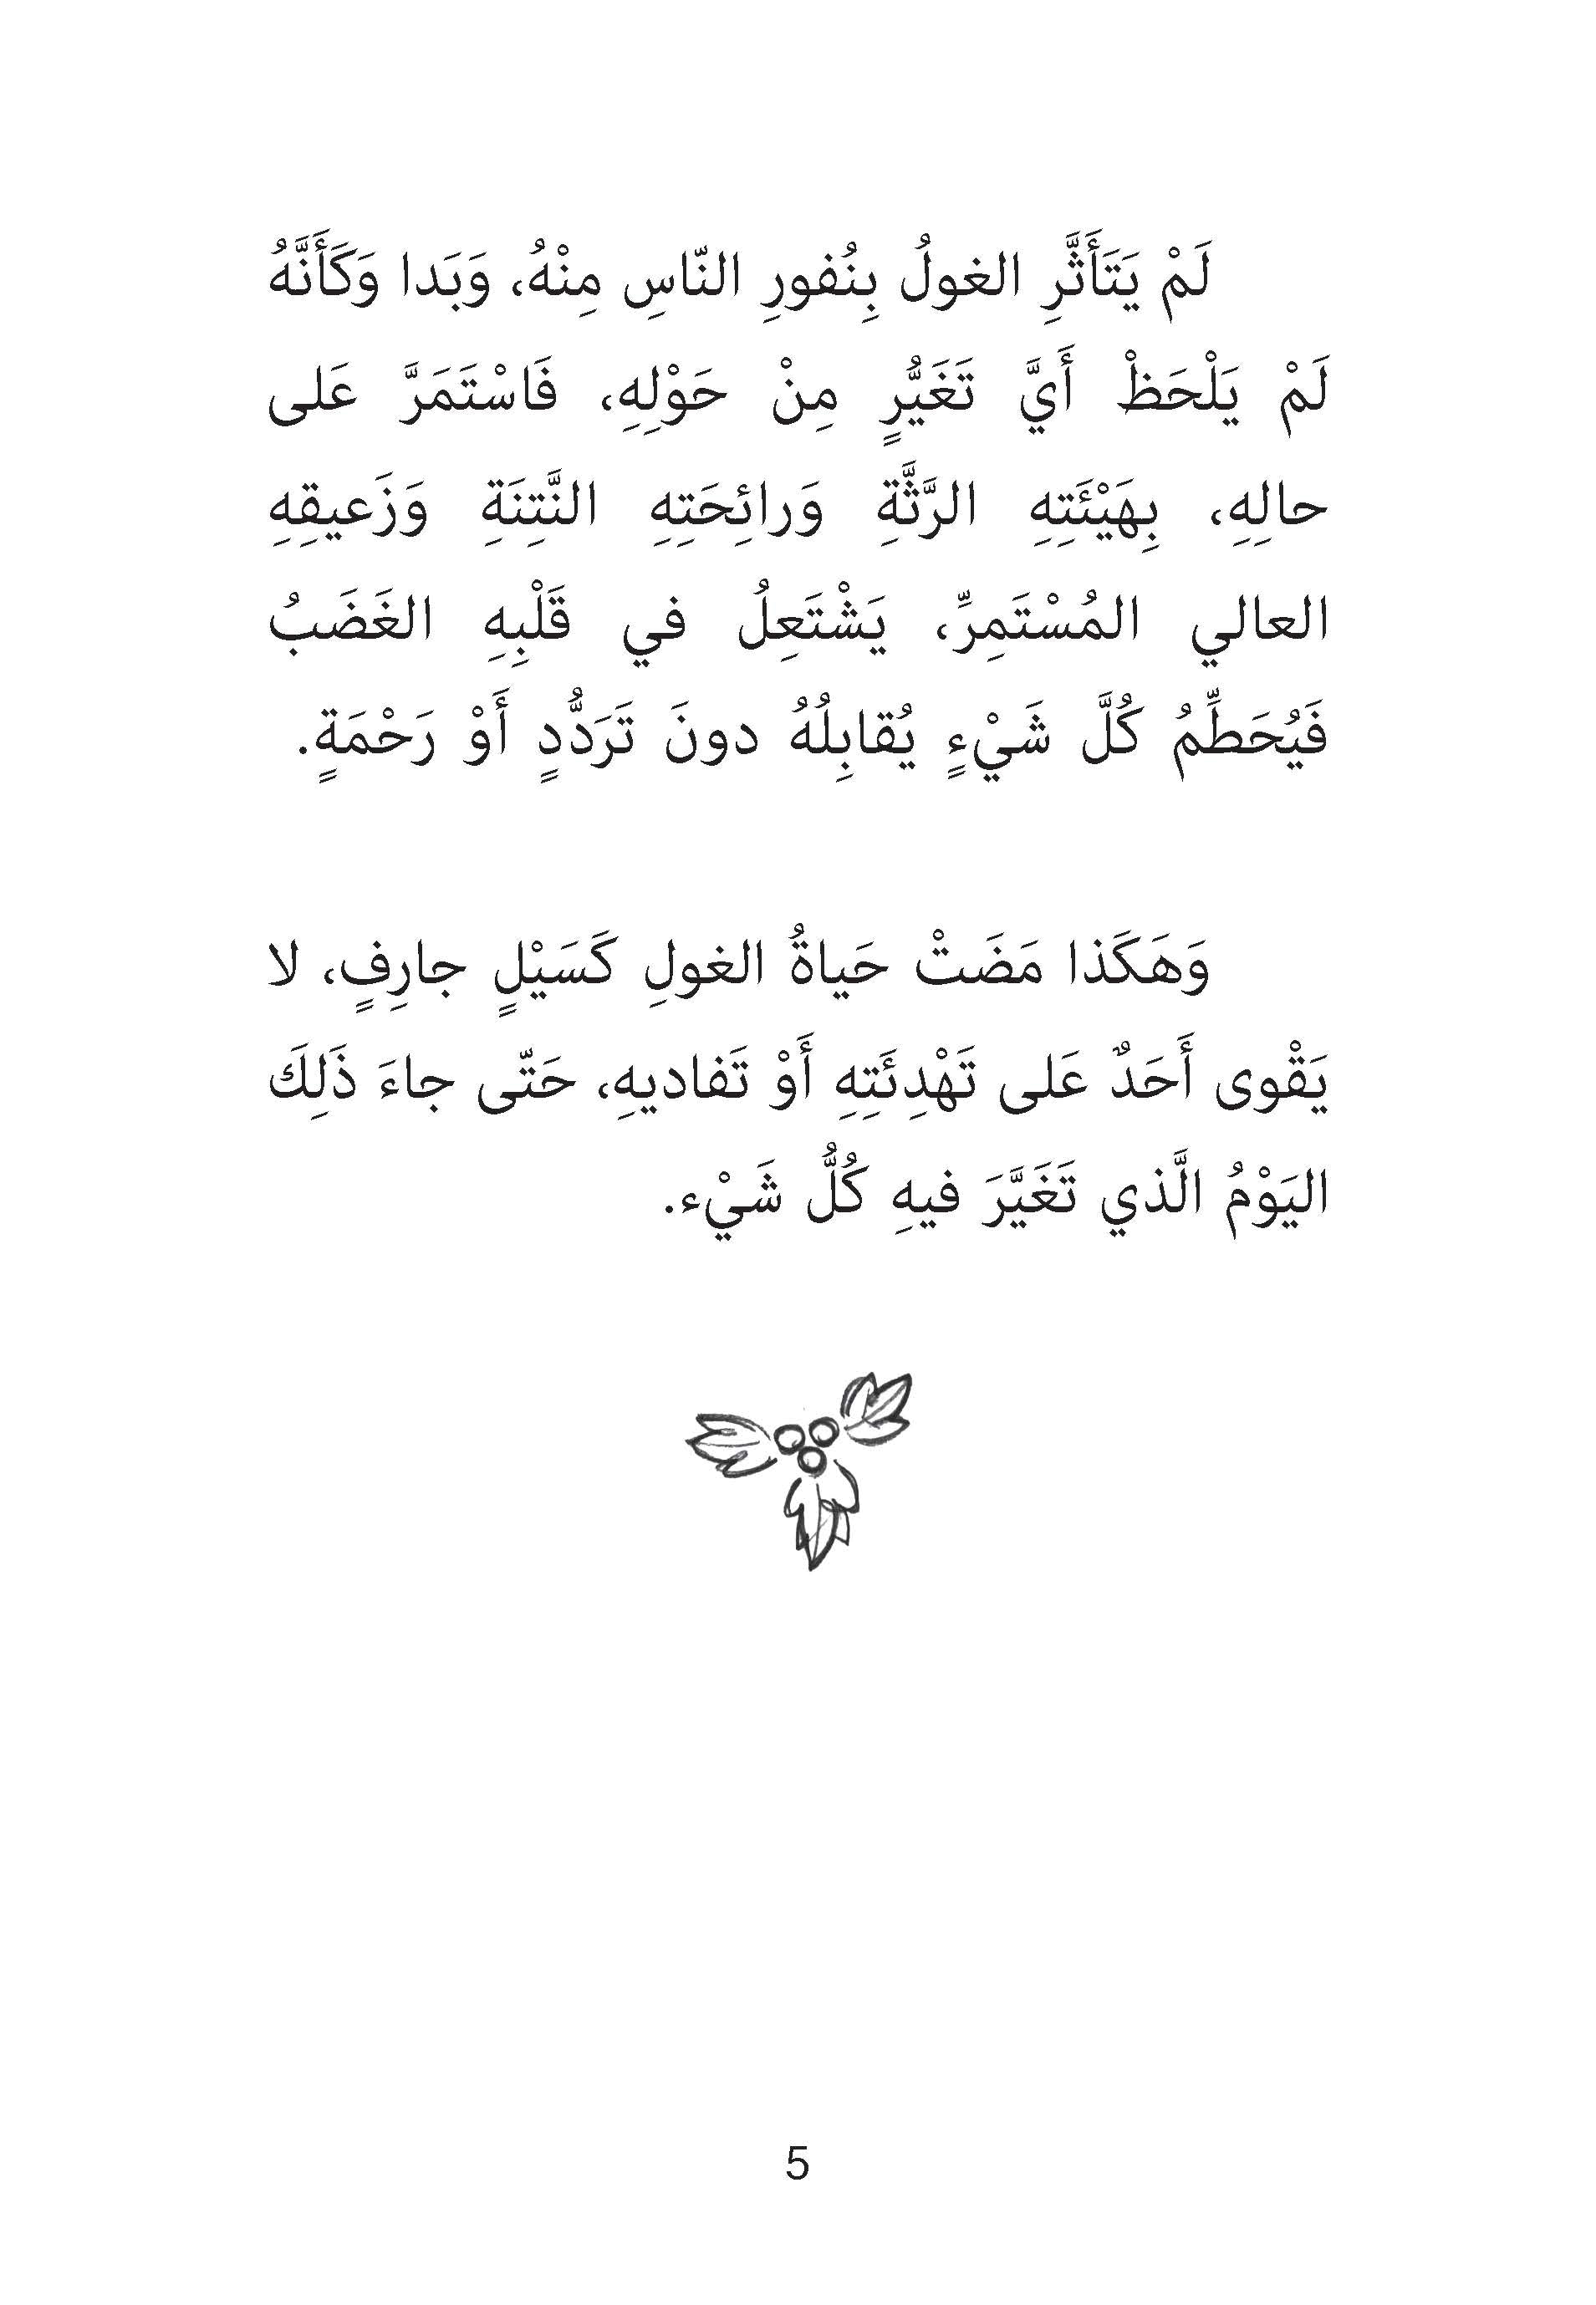 لَمْ يَتَأَثَّرِ الغولُ بِنُفورِ النّاسِ مِنْهُ، وَبَدا وَكَأَنَّهُ
لَمْ يَلْحَظْ أَيَّ تَغَيُّرٍ مِنْ حَوْلِهِ، فَاسْتَمَرَّ عَلى
حالِهِ، بِهَيْئَتِهِ الرَّثَّةِ وَرائِحَتِهِ النَّتِنَةِ وَزَعيقِهِ
العالي المُسْتَمِرِّ، يَشْتَعِلُ في قَلْبِهِ الغَضَبُ
فَيُحَطِّمُ كُلَّ شَيْءٍ يُقابِلُهُ دونَ تَرَدُّدٍ أَوْ رَحْمَةٍ.
وَهَكَذا مَضَتْ حَياةُ الغولِ كَسَيْلٍ جارِفٍ، لا
يَقْوى أَحَدٌ عَلى تَهْدِئَتِهِ أَوْ تَفاديهِ، حَتّى جاءَ ذَلِكَ
اليَوْمُ الَّذي تَغَيَّرَ فيهِ كُلُّ شَيْء.
5